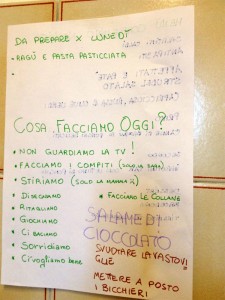 DA PREPARE X LUNEDÌ
- RAGÙ E PASTA PASTICCIATA
COSA FACCIAMO OGGI?
• NON GUARDIAMO LA TV!
• FACCIAMO I COMPITI (SOLO LA SARA)
• STIRIAMO (SOLO LA MAMMA)
• DISEGNAMO
• FACCIAMO LE COLLANE
• RITAGLIAMO
• GIOCHIAMO
• CI BACIAMO
• SORRIDIAMO
• CI VOGLIAMO BENE
SALAME DI
CIOCCOLATO
SVUOTARE LAVASTOVI
GLIE
METTERE A POSTO
I BICCHIERI